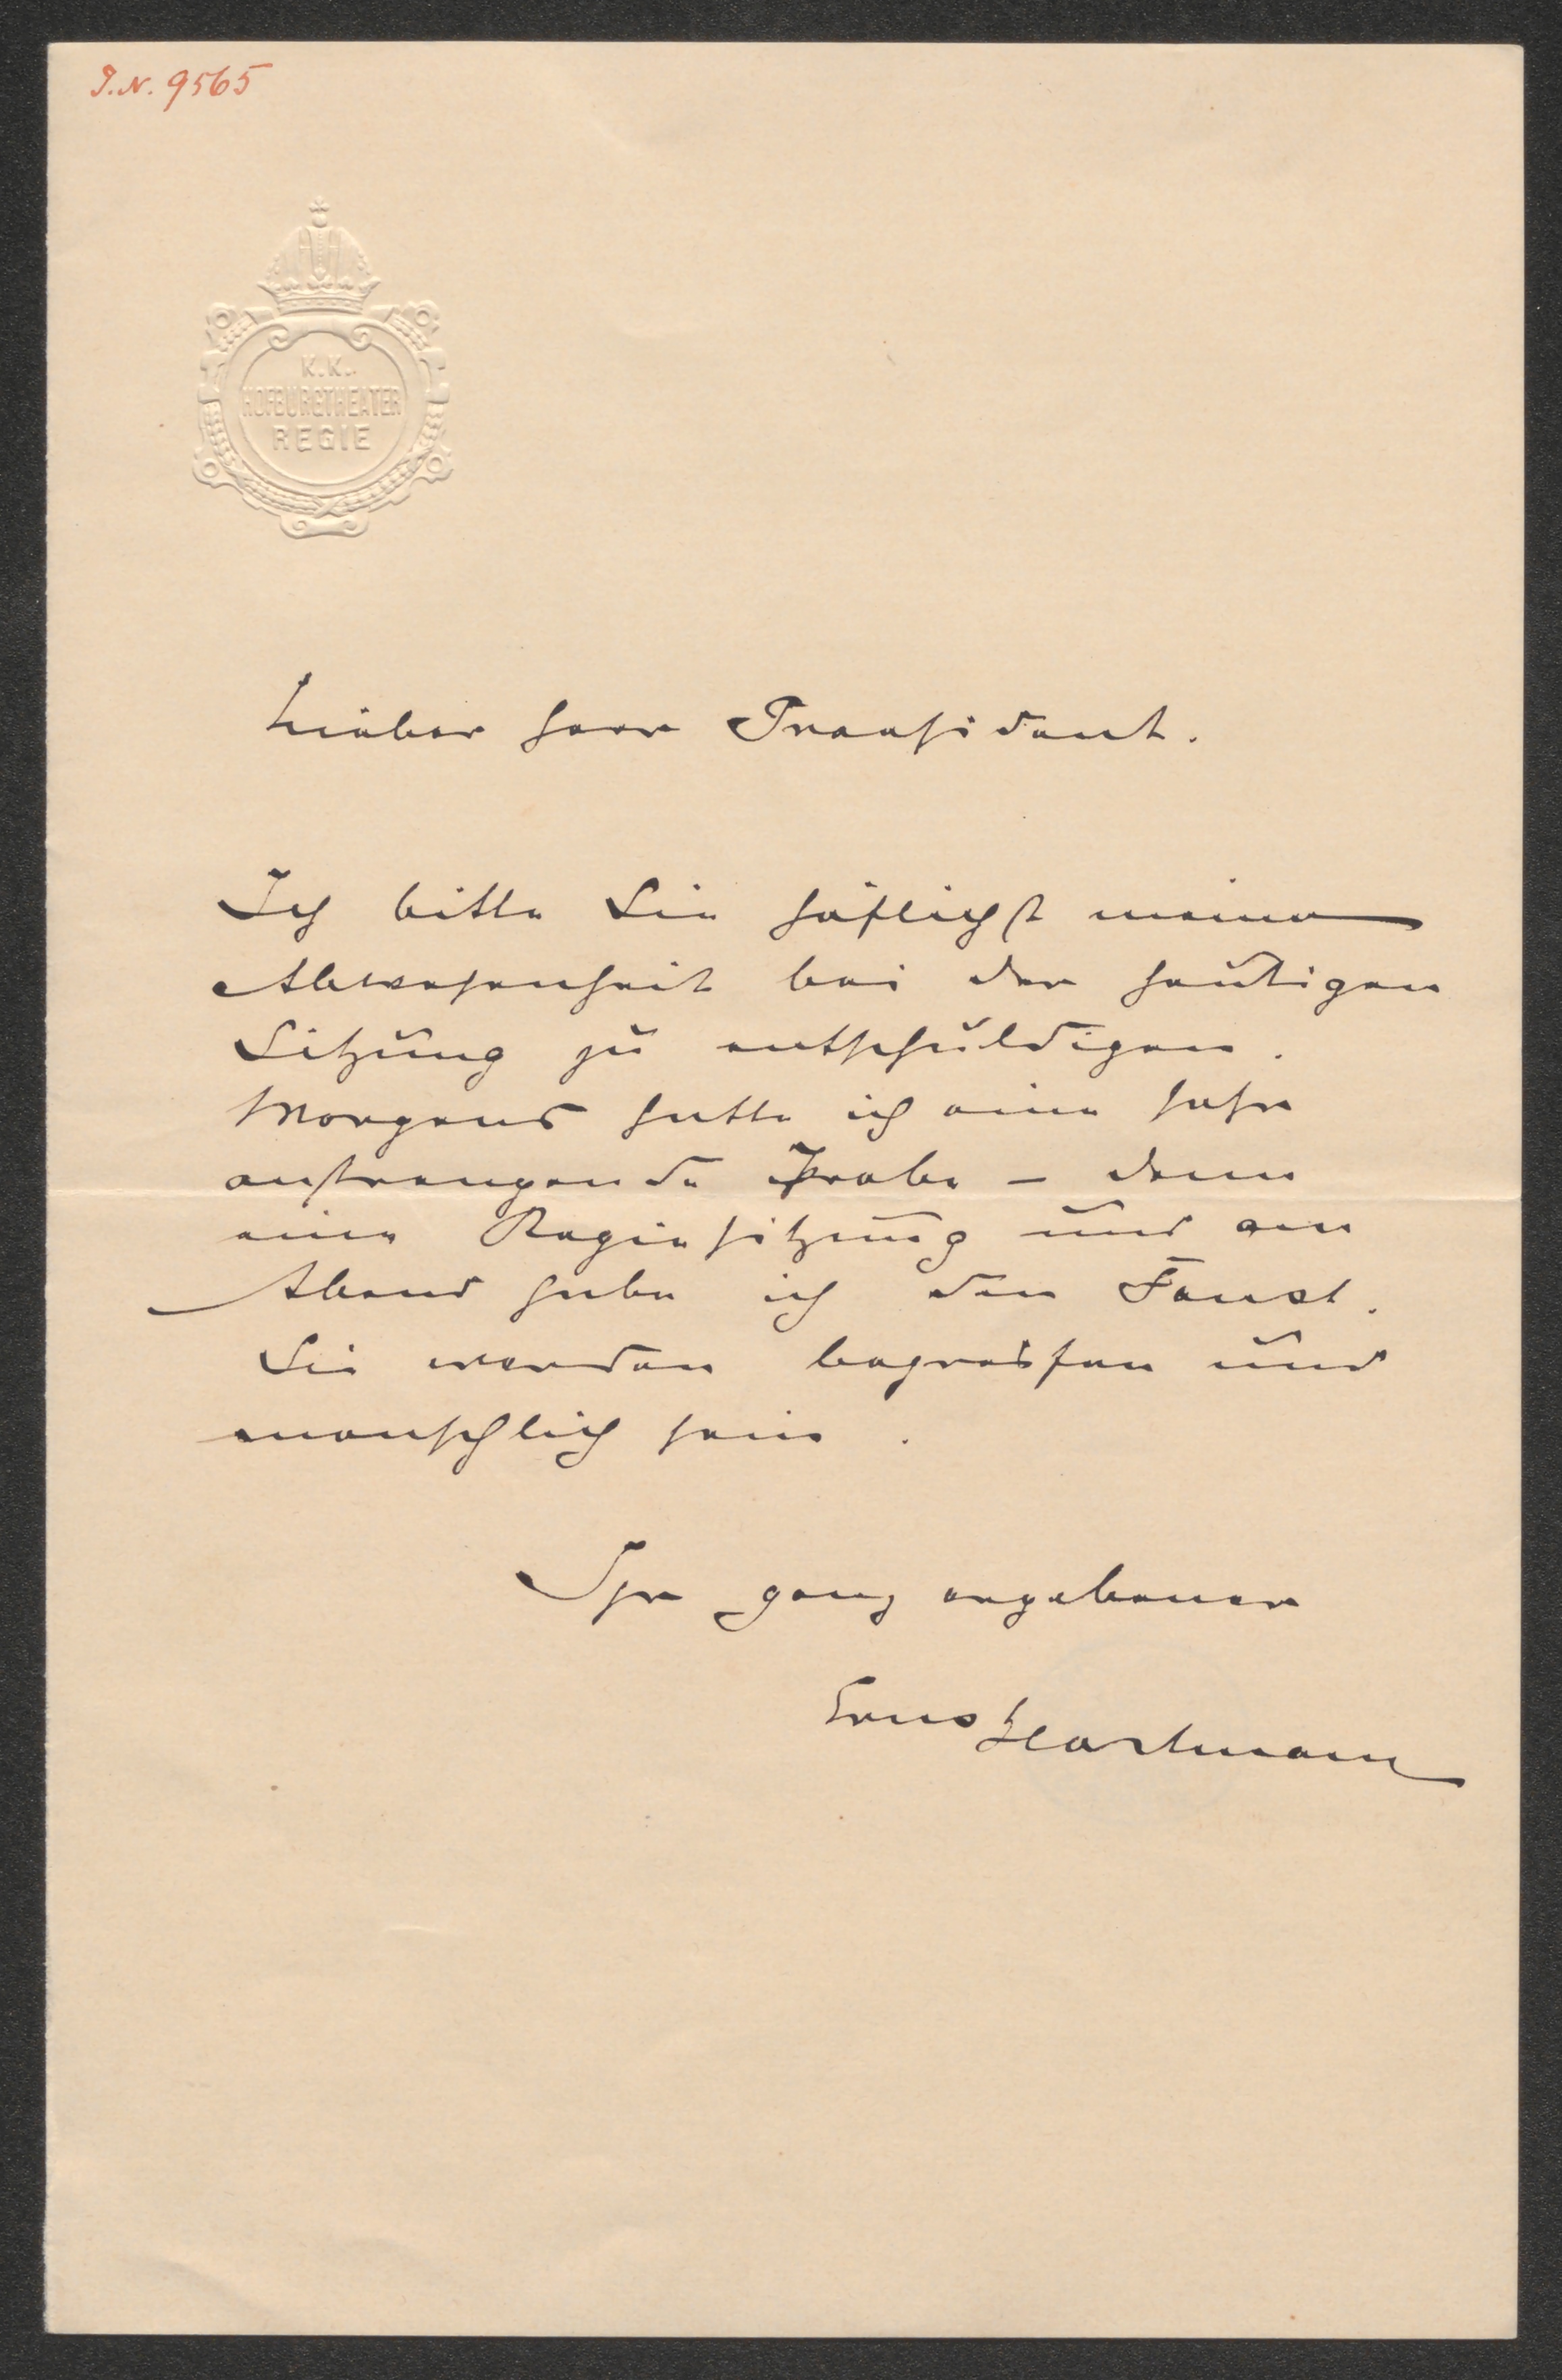 J.N. 9565
K.K.
HOFBURGTHEATER
REGIE
Lieber Herr Praesident.
Ich bitte Sie höflichst meine
Abwesenheit bei der heutigen
Sitzung zu entschuldigen.
Morgens hatte ich eine sehr
anstrengende Probe – dann
eine Regiesitzung und am
Abend habe ich den Faust.
Sie werden begreifen und
menschlich sein.
Ihr ganz ergebener
Ernst Hartmann